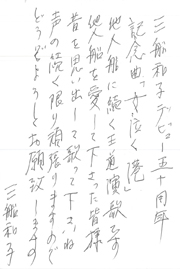 三船和子デビュー五十周年
記念曲「女が泣く港」
他人船に続く王道演歌です
他人船を愛して下さった皆様
昔を思い出して歌って下さいね
声の続く限り頑張りますので
どうぞよろしくお願い致します
三船和子